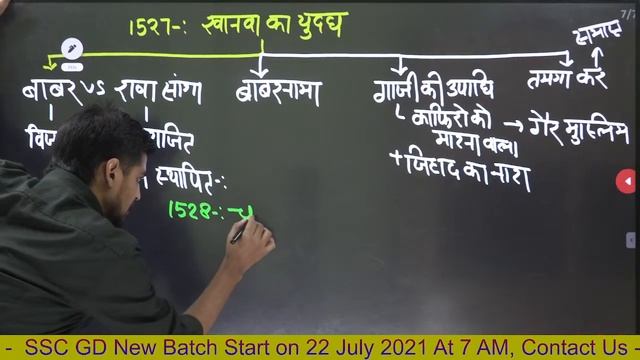 7/7
1527-: खानवा का युदध
समाप्त
बाबर VS राणा सांगा
बाबरनामा
गाजी की उपाधि
तमगा कर
काफिरो को मारना वाला → गैर मुस्लिम
+ जिहाद का नारा
स्थापित -:
1528-:
- SSC GD New Batch Start on 22 July 2021 At 7 AM, Contact Us -